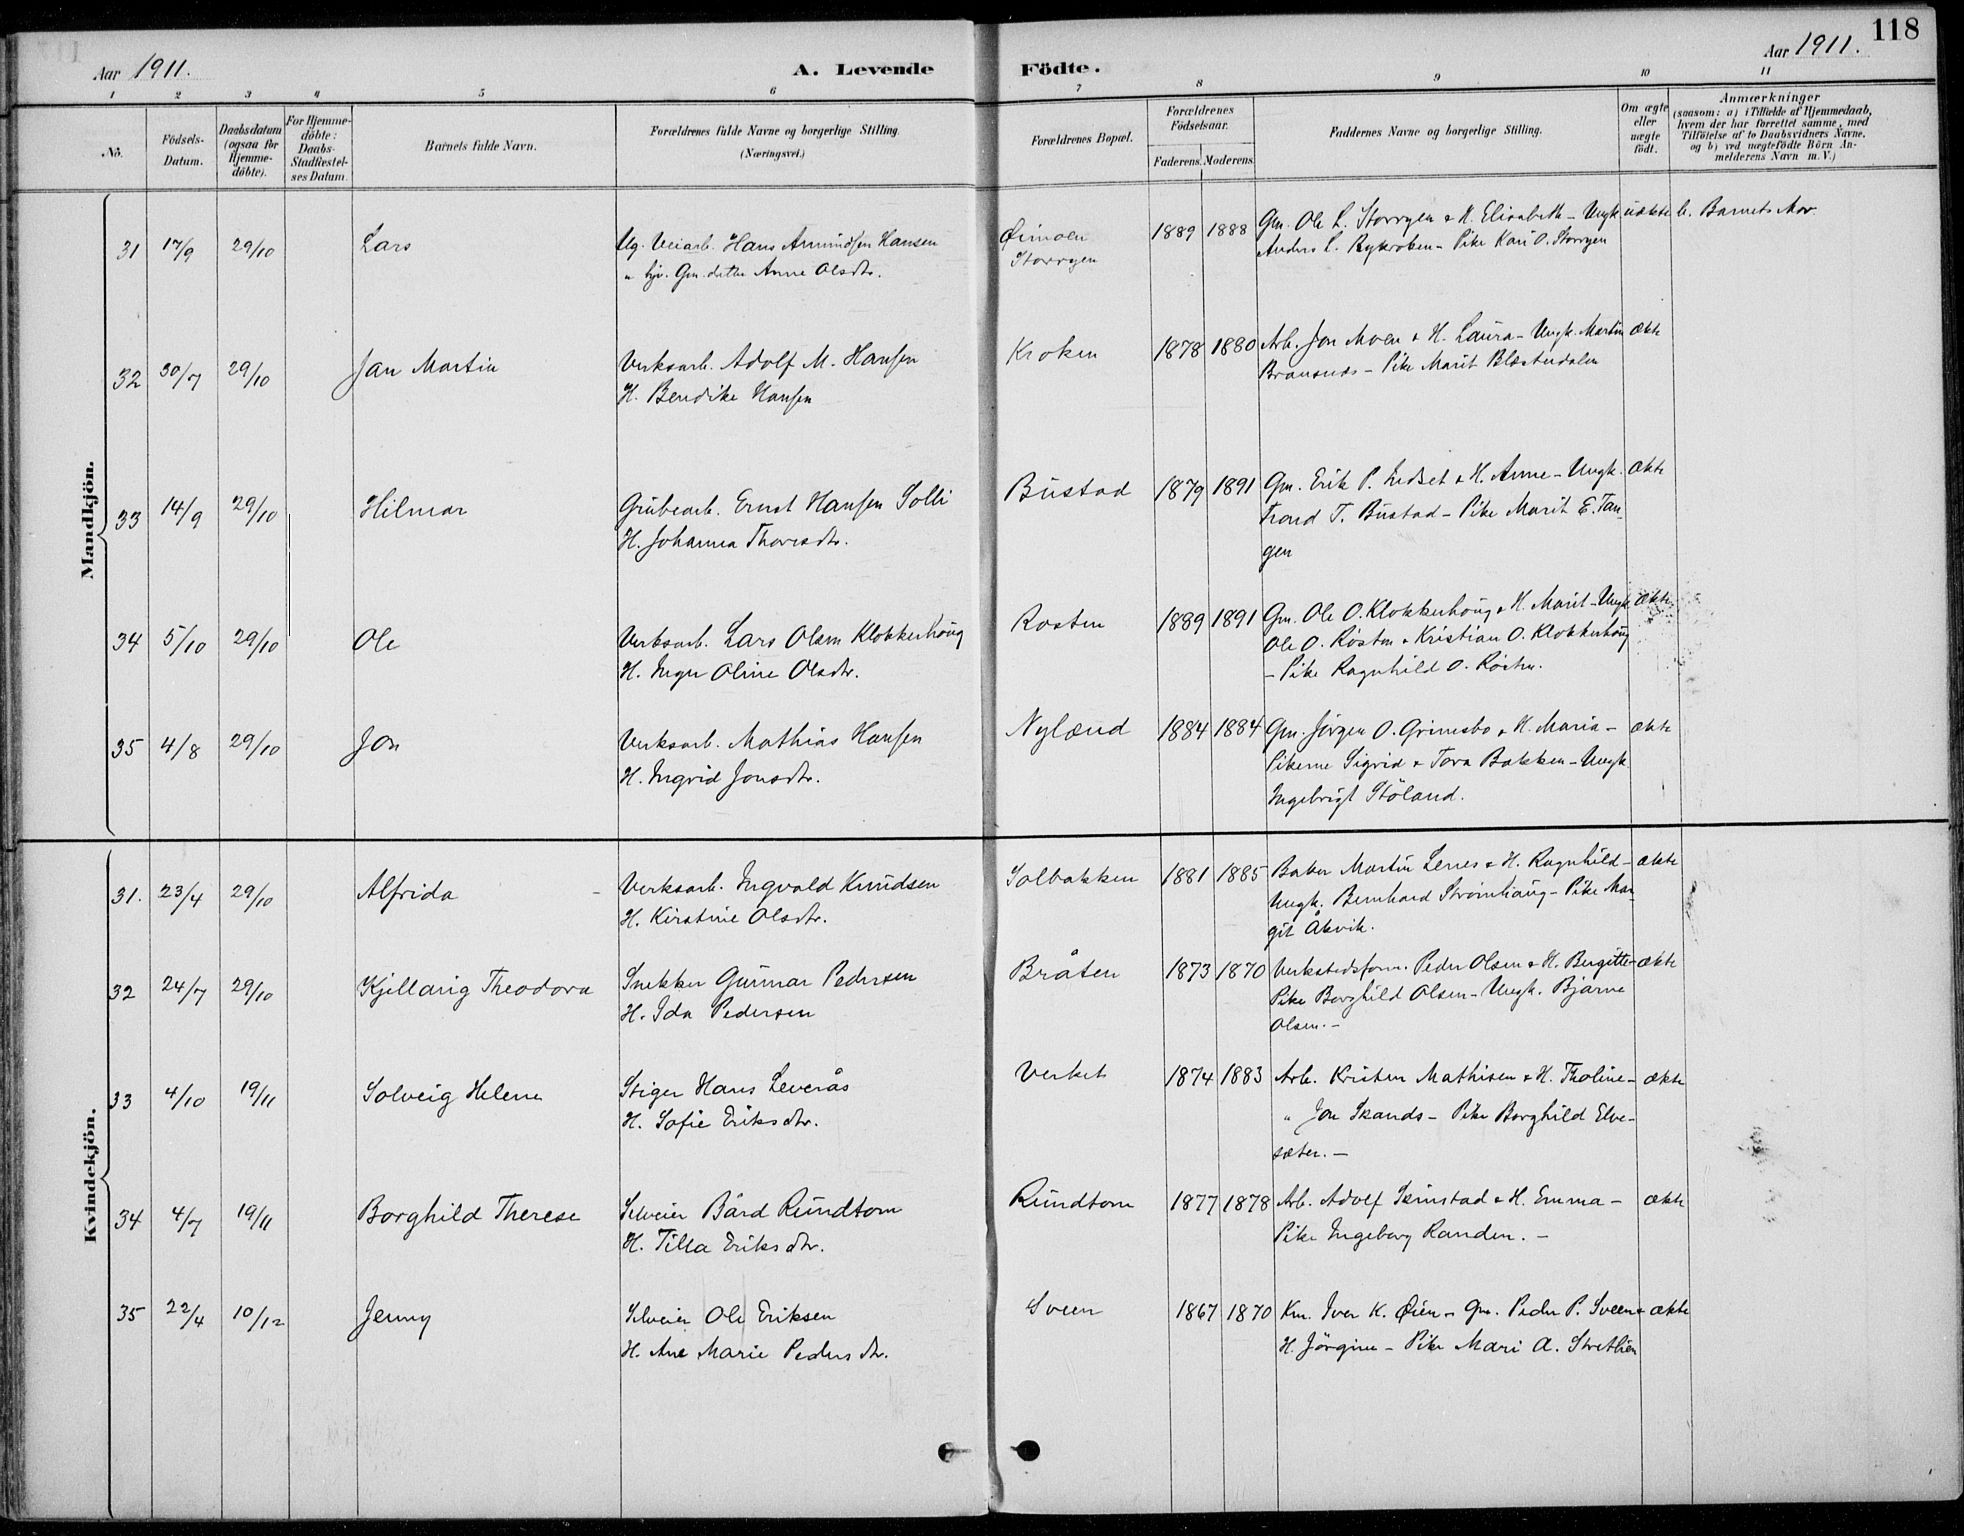 118
Aar 1911.
A. Levende Födte.
Aar 1911.
1 2 3 4 5 6 7 8 9 10 11
No.
Födsels-
Datum.
Daabsdatum
(ogsaa for
Hjemme-
döbte).
For Hjemme-
döbte:
Daabs-
Stadfæstel-
ses Datum.
Barnets fulde Navn.
Forældrenes fulde Navne og borgerlige Stilling.
(Næringsvei.)
Forældrenes Bopæl.
Forældrenes
Födselsaar.
Faderens. Moderens.
Faddernes Navne og borgerlige Stilling.
Om ægte
eller
uægte
födt.
Anmærkninger
(saasom: a) i Tilfælde af Hjemmedaab,
hvem der har forrettet samme, med
Tilföielse af to Daabsvidners Navne,
og b) ved uægtefödte Börn An-
melderens Navn m. V.)
Mandkjön.
31 17/9 29/10 Lars
Ug. Veiarb. Hans Amundsen Hansen
" Gm. datter Anne Olsdtr.
Øimoen
Storrygen
1889 1888
Gm. Ole L. Storrygen & H. Elisabeth - Ungk.
Anders L. - Pike Kari O. Storrygen
uækte
b. Barnets Mor
32 30/7 29/10 Jan Martin
Verksarb. Adolf M. Hansen
H. Bendike Hansen
Kroken
1878 1880
Arb. Jon Moen & H. Laura - Ungk. Martin
- Pike Marit Blæsterdalen
ækte
33 14/9 29/10 Hilmar
Grubearb. Ernst Hansen Solli
H. Johanna Thoresdtr.
Bustad
1879 1891
Gm. Erik P. & H. Anne - Ungk.
Trond T. Bustad - Pike Marit E. Tan-
gen
ækte
34 5/10 29/10 Ole
Verksarb. Lars Olsen Klokkerhoug
H. Inger Oline Olsdtr.
Rosten
1889 1891
Gm. Ole O. Klokkerhoug & H. Marit - Ungk.
Ole O. Rösten & Kristian O. Klokkerhoug
- Pike Ragnhild O. Rösten.
ækte
35 4/8 29/10 Jon
Verksarb. Mathias Hansen
H. Ingrid Jonsdtr.
Nylænd
1884 1884
Gm. Jörgen O. Grimsbo & H. Maria -
Pikerne Sigrid & Tora Bakken - Ungk.
Ingebrigt Stöland.
ækte
Kvindekjön.
31. 23/4 29/10 Alfrida
Verksarb. Ingvald Knudsen
H. Kirstine Olsdtr.
Solbakken
1881 1885
Baker Martin Lenes & H. Ragnhild -
Ungk. Bernhard Strömhaug - Pike Mar-
git Åkvik.
ækte
32 24/7 29/10 Kjellaug Theodora
Snekker Gunnar Pedersen
H. Ida Pedersen
Bråten
1873 1870
Verkstedsform. Peder Olsen & H. Bergitte -
Pike Borghild Olsen - Ungk. Bjarne
Olsen. -
ækte
33 4/10 19/11 Solveig Helene
Stiger Hans Leverås
H. Sofie Eriksdtr.
Verket
1874 1883
Arb. Kristen Mathisen & H. Tholine -
" Jon Skands - Pike Borghild Elve-
sæter. -
ækte
34 4/7 19/11 Borghild Therese
Selveier Bård Rundtom
H. Tilla Eriksdtr.
Rundtom
1877 1878
Arb. Adolf & H. Emma -
Pike Ingeborg Randen. -
ækte
35 22/4 10/12 Jenny
Selveier Ole Eriksen
H. Ane Marie Pedersdtr.
Sveen
1867 1870
Km. Iver K. Øien - Gm. Peder P. Sveen &
H. Jörgine - Pike Mari A. Stretlien
ækte